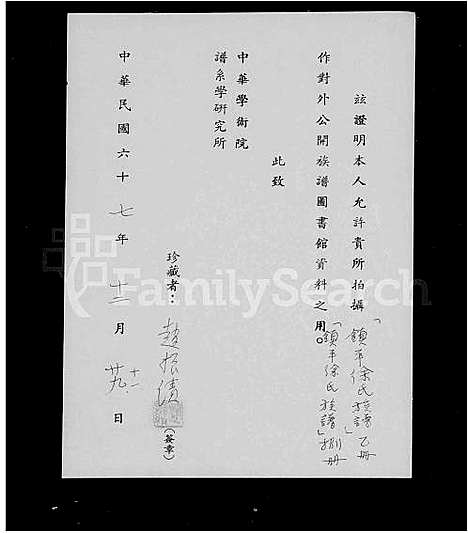 茲證明本人允許貴所拍攝「鎮平徐氏族譜」乙冊
「鎮平徐氏族譜」捌冊
作對外公開族譜圖書館資料之用。
此致
中華學術院
譜系學研究所
珍藏者：趙振績
(簽章)
中華民國六十七年十二月廿九日
FamilySearch